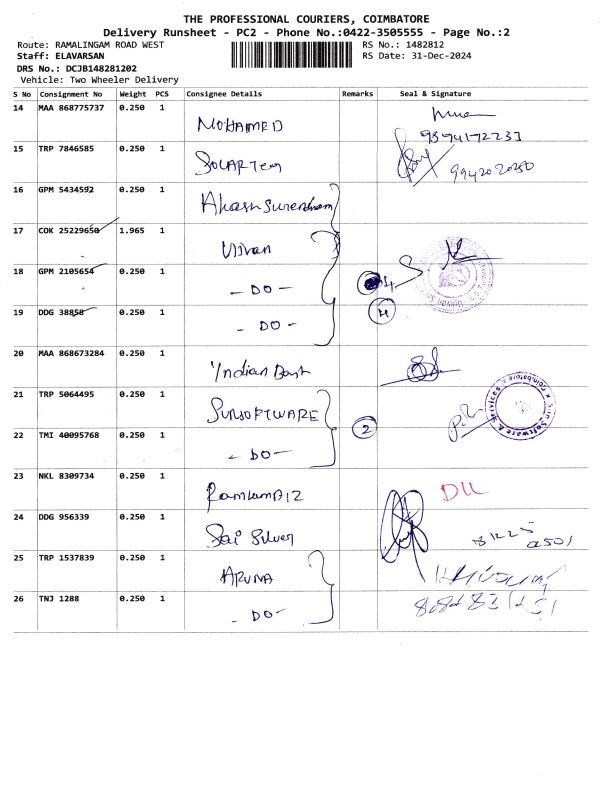 THE PROFESSIONAL COURIERS, COIMBATORE
Delivery Runsheet - PC2 - Phone No.:0422-3505555 - Page No.:2
Route: RAMALINGAM ROAD WEST RS No.: 1482812
Staff: ELAVARSAN RS Date: 31-Dec-2024
DRS No.: DCJB148281202
Vehicle: Two Wheeler Delivery
S No Consignment No Weight PCS Consignee Details Remarks Seal & Signature
14 MAA 868775737 0.250 1 MOHAMED
15 TRP 7846585 0.250 1 SOLARTEQ
16 GPM 5434592 0.250 1 Akash Surendram
17 COK 25229650 1.965 1
18 GPM 2105654 0.250 1 - DO - 4
19 DDG 38858 0.250 1 - DO -
20 MAA 868673284 0.250 1 Indian Bank
21 TRP 5064495 0.250 1 SUNSOFTWARE
22 TMI 40095768 0.250 1 - DO - 2
23 NKL 8309734 0.250 1 DLL
24 DDG 956339 0.250 1 Sai Silver
25 TRP 1537839 0.250 1 ARUNA
26 TNJ 1288 0.250 1 - DO -